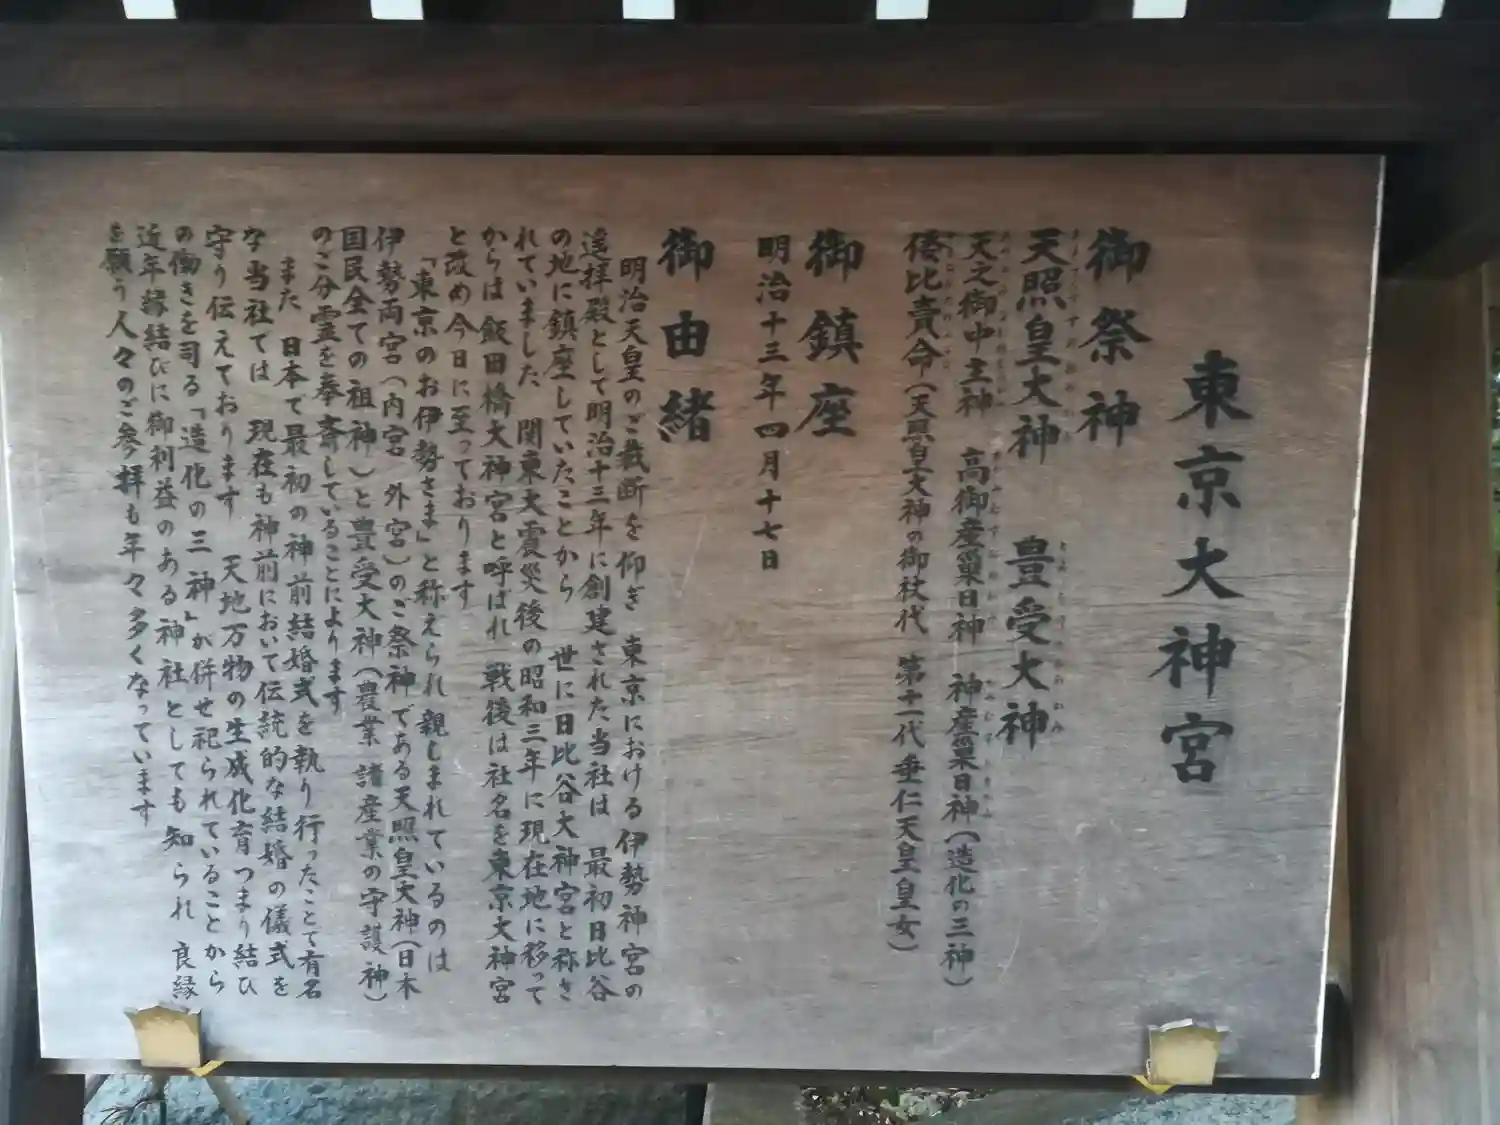 東京大神宮
御祭神
天照皇大神　豊受大神
天之御中主神　高御産巣日神　神産巣日神（造化の三神）
倭比賣命（天照皇大神の御杖代　第十一代　垂仁天皇皇女）
御鎮座
明治十三年四月十七日
御由緒
明治天皇のご裁断を仰ぎ　東京における伊勢神宮の
遙拝殿として明治十三年に創建された当社は　最初日比谷
の地に鎮座していたことから　世に日比谷大神宮と称さ
れていました　関東大震災後の昭和三年に現在地に移って
からは飯田橋大神宮と呼ばれ　戦後は社名を東京大神宮
と改め今日に至っております
「東京のお伊勢さま」と称えられ親しまれているのは
伊勢両宮（内宮　外宮）のご祭神である天照皇大神（日本
国民全ての祖神）と豊受大神（農業　諸産業の守護神）
のご分霊を奉斎していることによります
また　日本で最初の神前結婚式を執り行ったことで有名
な当社では　現在も神前において伝統的な結婚の儀式を
守り伝えております　天地万物の生成化育つまり結び
の働きを司る「造化の三神」が併せ祀られていることから
近年縁結びに御利益のある神社としても知られ　良縁
を願う人々のご参拝も年々多くなっています